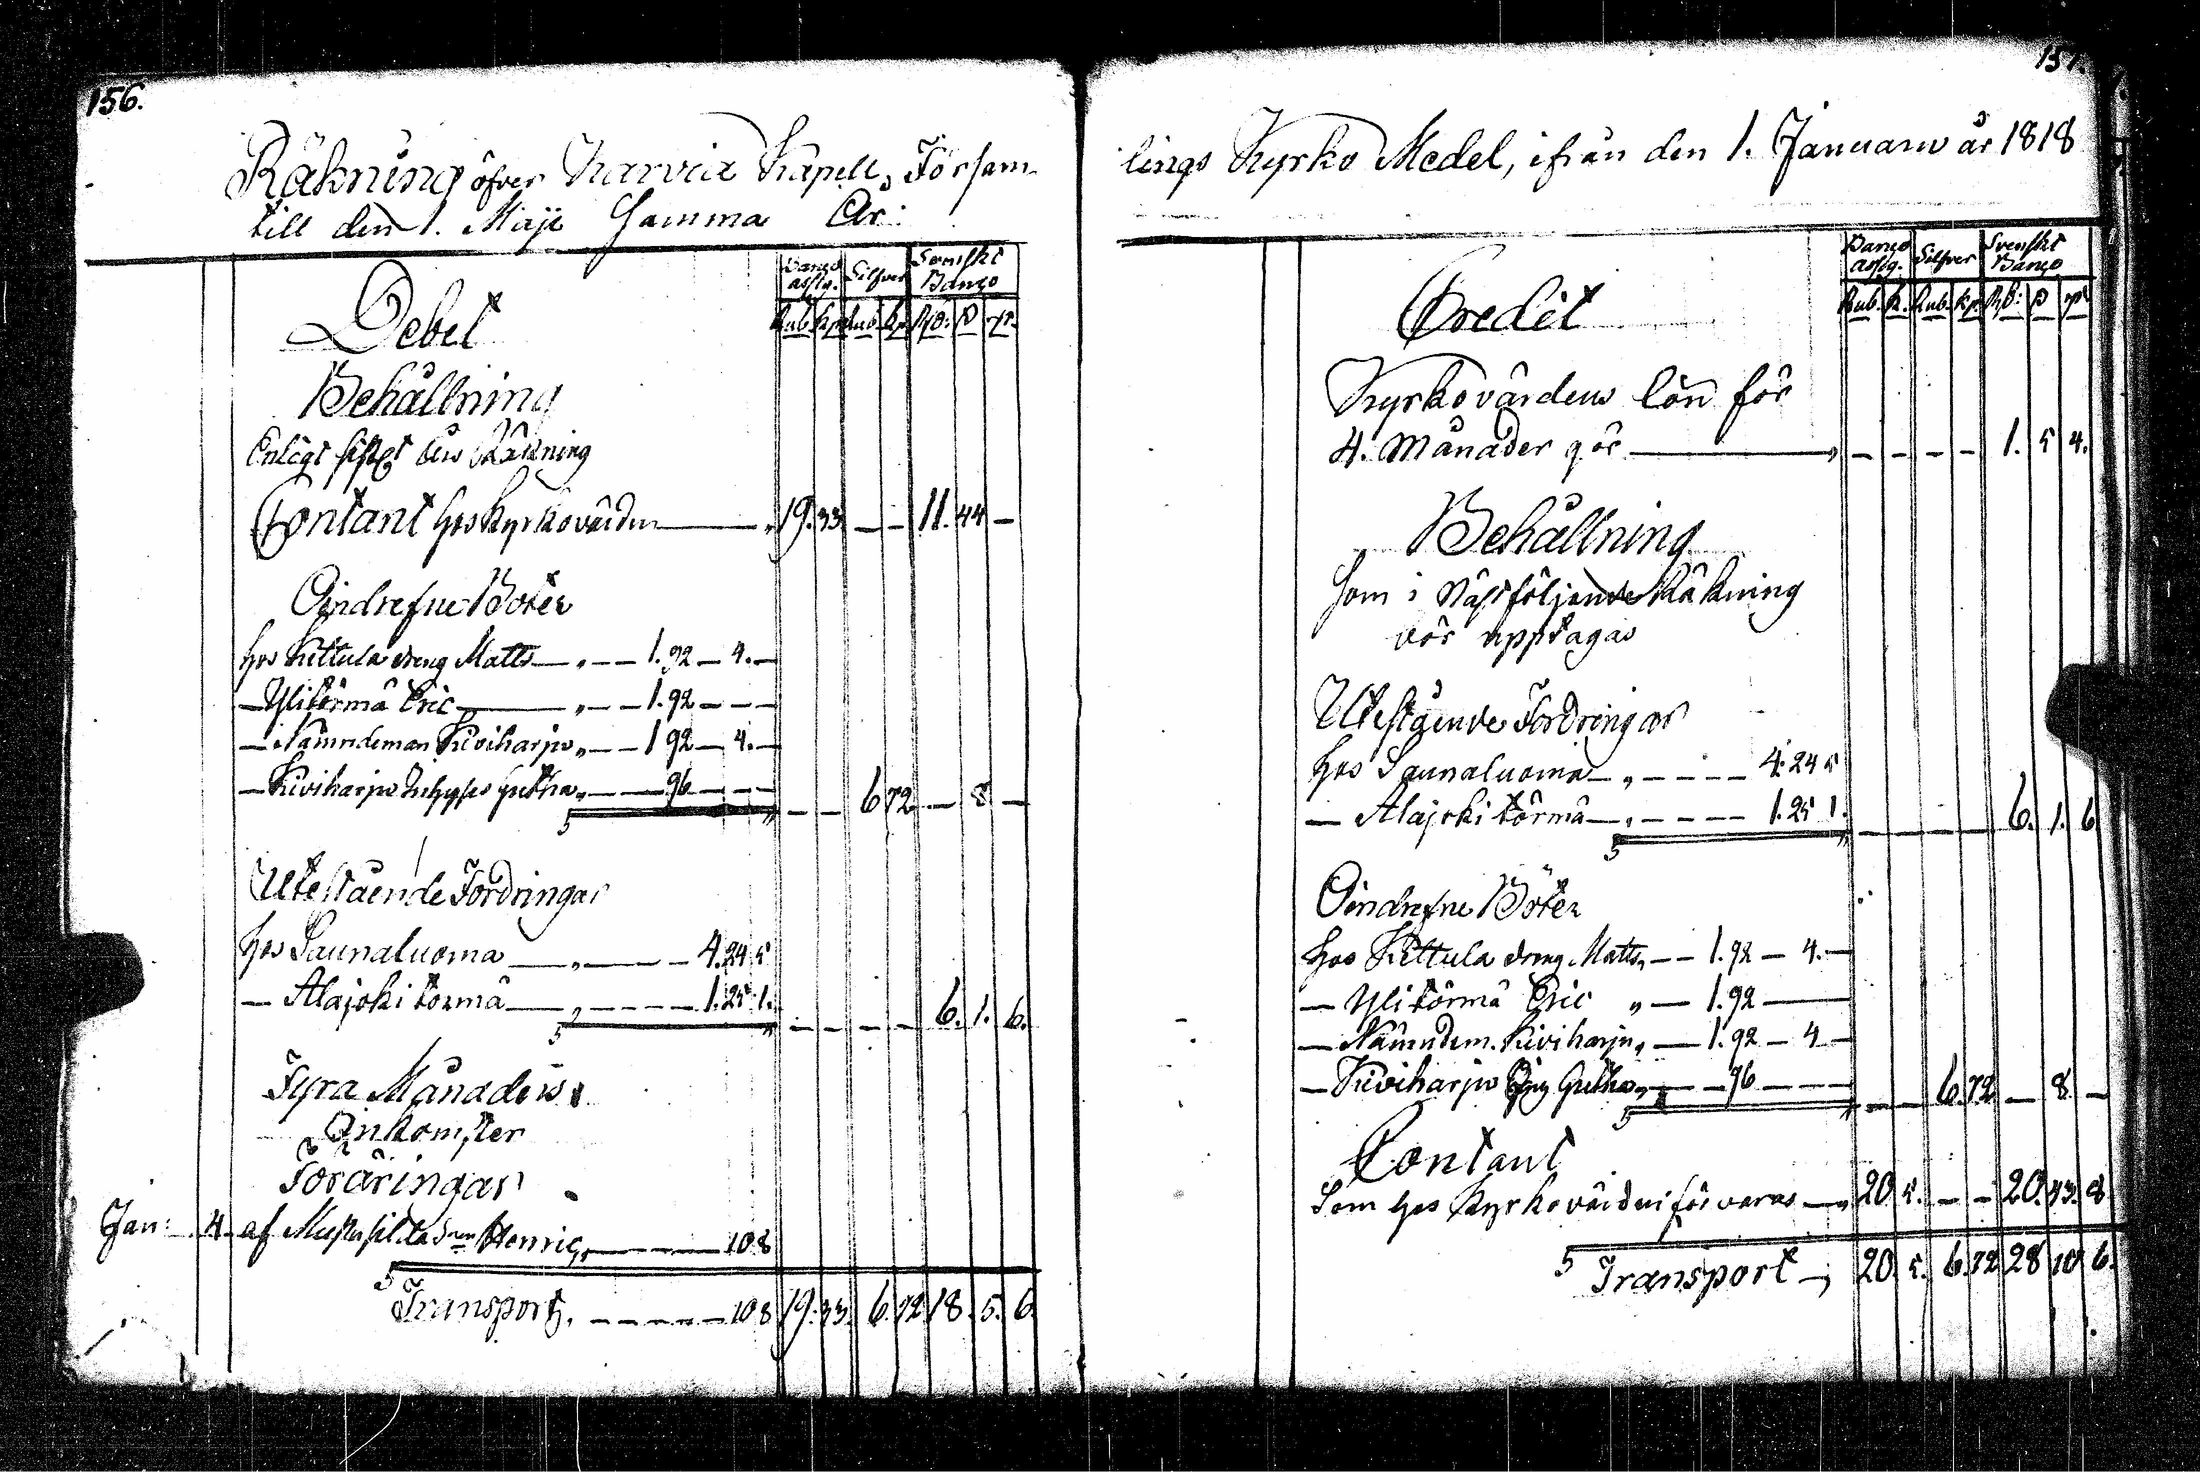 156.
Räkning öfver Karvia Kapell, Församˉ
till den 1. Maji Samma År:
Debet
Banco assig. Silfver Svenskt Banco
Rub. Kp. Rub. Kp. Rd: s rst.
Behållning
Enligt sistl Års Räkning
Contant hos Kyrkovärden — 19. 33 — — 11. 44 —
Oindrefne Böter
hos Kittula dreng Matts — „ — — 1. 92 — 4. —
— Ylitörmä Eric — „ — — 1. 92 — — —
— Nämndeman Kiviharju „ — — 1 92 — 4. —
— Kiviharju „ — — 96 — — —
— — 6 72 — 8 —
Utestående Fordringar
hos Saunaluoma — „ — — 4. 24 5
— Alajoki törmä — „ — — — 1. 25 1.
— — — — 6. 1. 6.
Fyra Månaders
Inkomster
Föräringar
Jan: 4. af Henric, — — — 10 8
S Transport, — — — — 10 8 19. 33. 6. 72 18. 5. 6.
157.
lings Kyrko Medel, ifrån den 1. Januarii år 1818
Credit
Banco assig. Silfver Svenskt Banco
Rub. K. Rub. Kp. Rd: s rst
Kyrkovärdens lön för
4. Månader gör — „ — — — — 1. 5 4.
Behållning
Som i Nästföljande Räkning
bör upptagas
Utestående Fordringar
hos Saunaluoma — „ — — — 4. 24 5
— Alajoki törmä — „ — — — — 1. 25 1.
— — — — 6. 1. 6
Oindrefne Böter
hos Kittula dreng Matts „ — — 1. 92 — 4. —
— Ylitörmä Eric „ — 1. 92 —
— Nämndem. Kiviharju „ — 1. 92 — 4 —
— Kiviharju „ — — 96 — — —
— — 6. 72 — 8. —
Contant
Som hos Kyrkovärden förvaras — „ 20. 5. — — 20. 43. 8
S Transport — „ 20. 5. 6. 72 28 10 6.